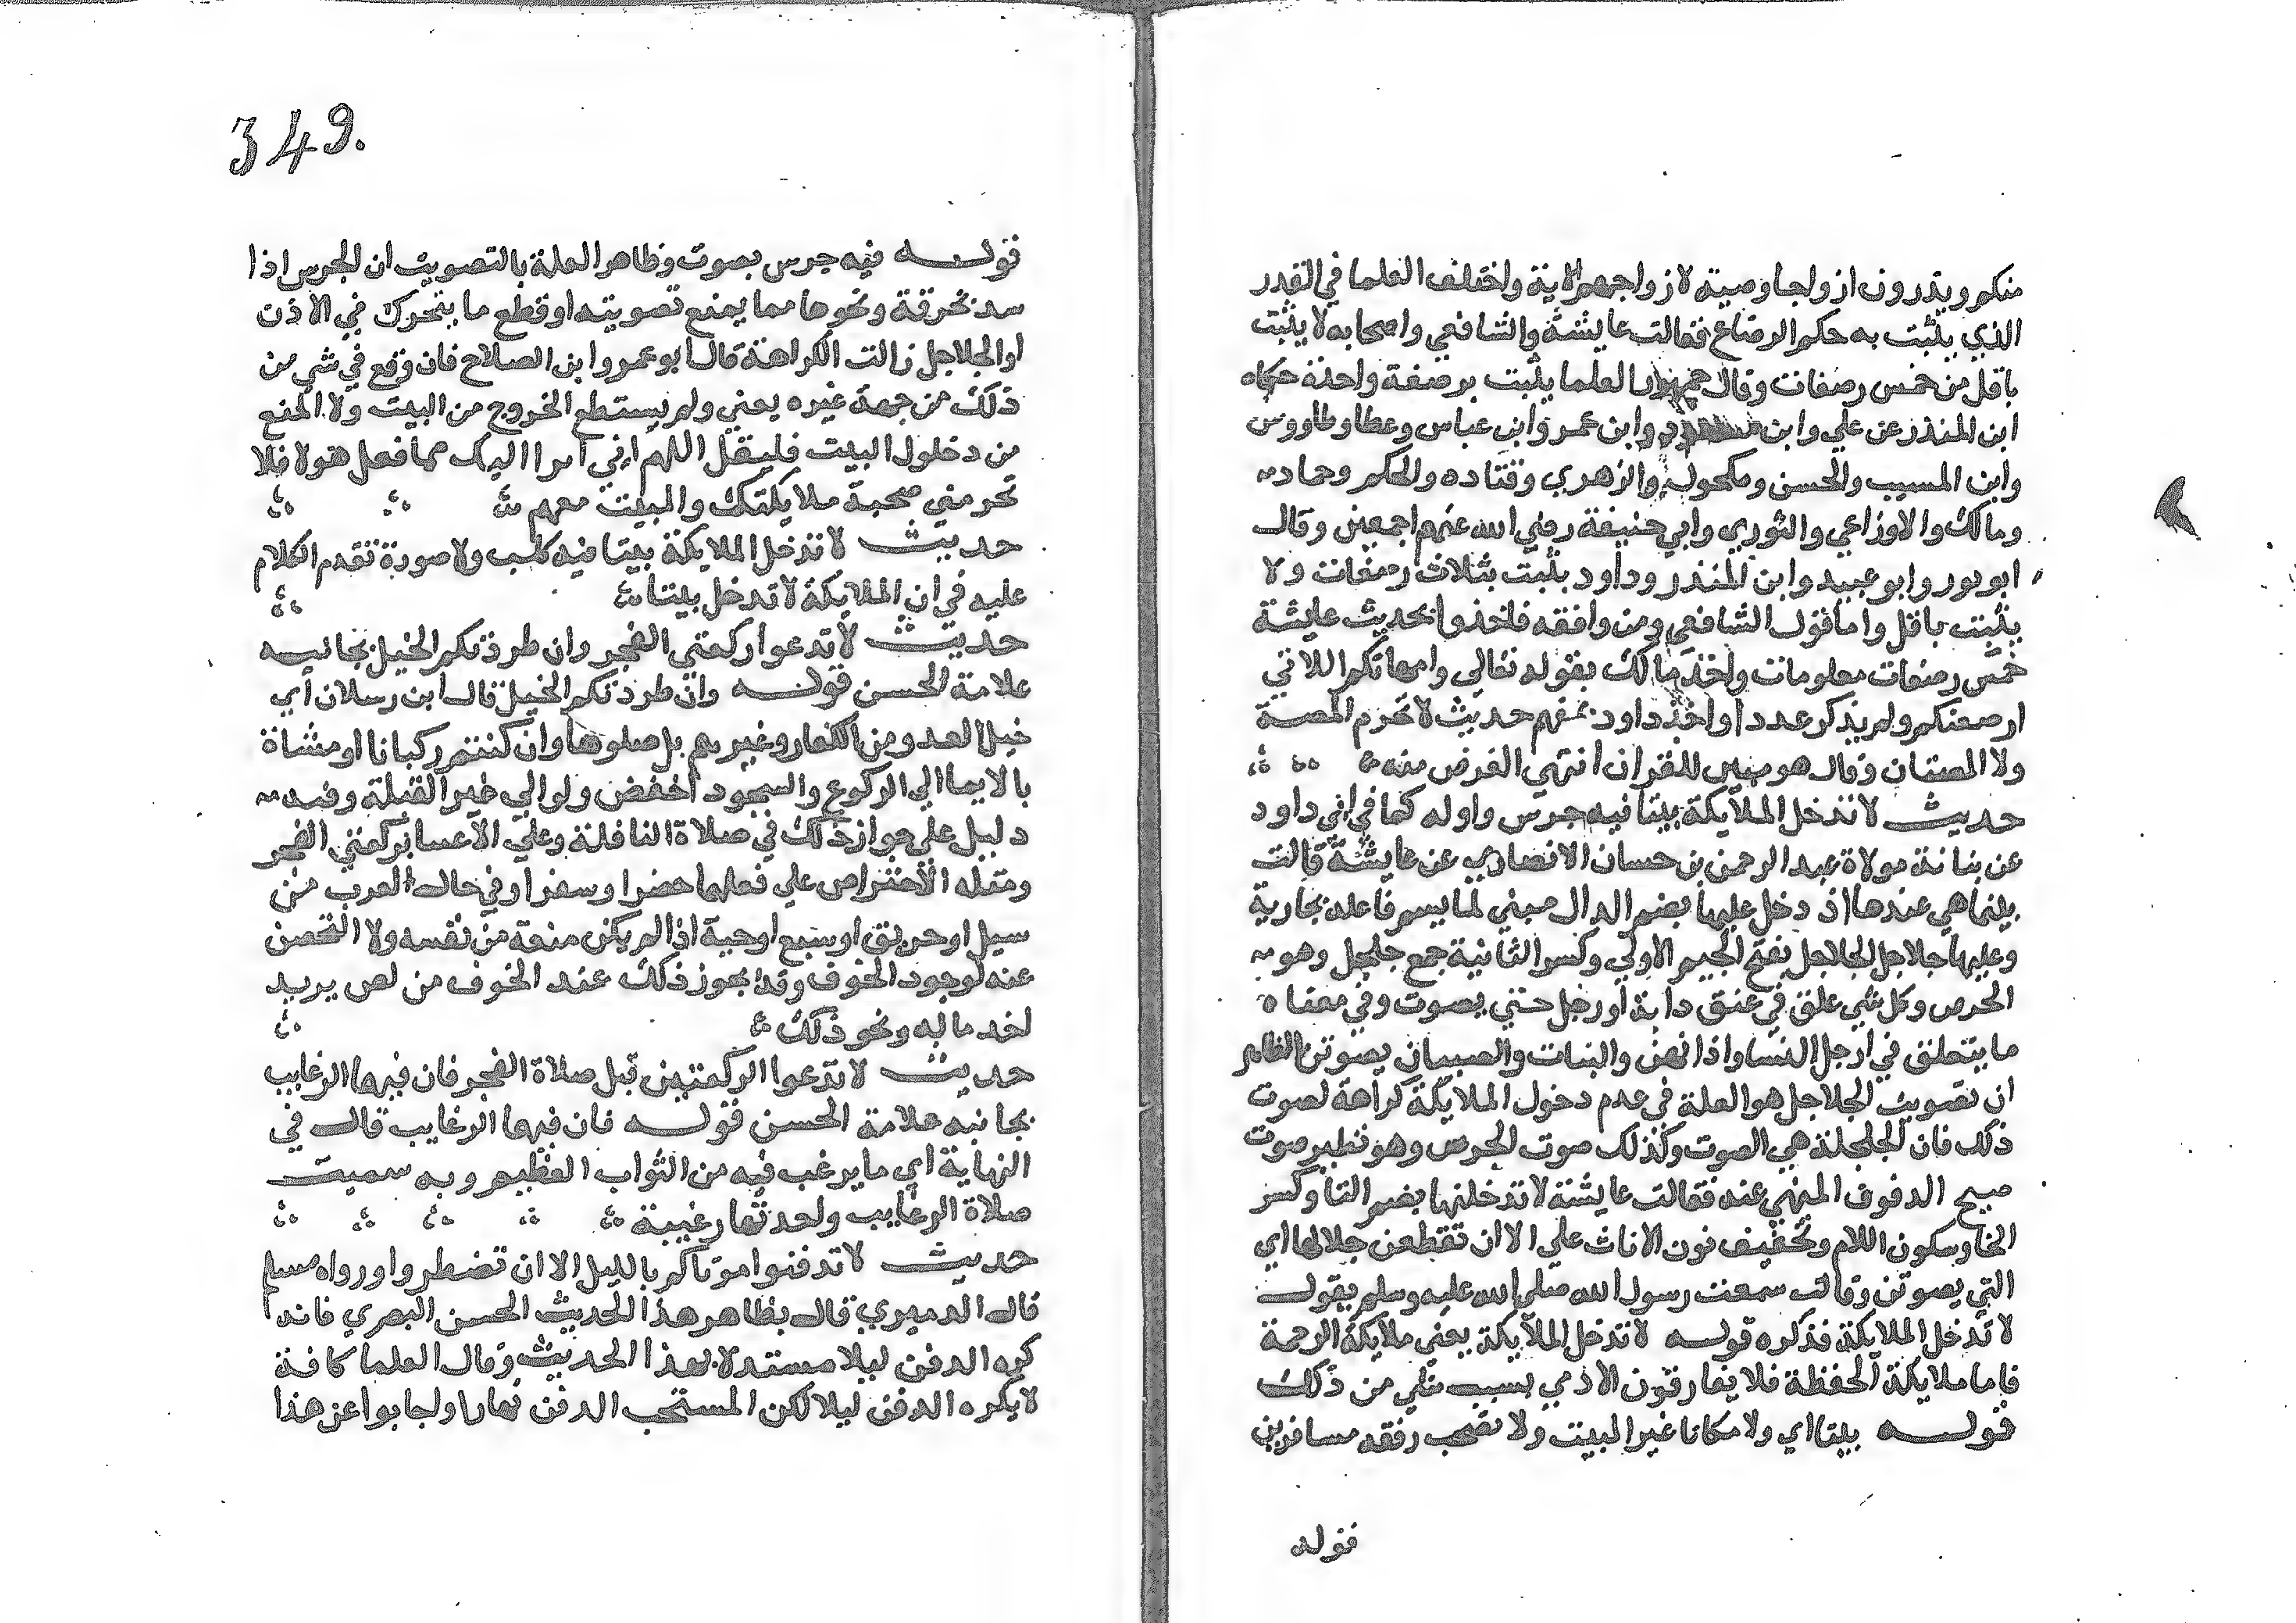 منكم ويذرون ازواجا وصية لازواجهم الاية واختلف العلما في القدر
الذي يثبت به حكم الرضاع فقالت عايشة والشافعي واصحابه لا يثبت
باقل من خمس رضعات وقال جمهور العلما يثبت برضعة واحدة حكاه
ابن المنذر عن علي وابن مسعود وابن عمر وابن عباس وعطا وطاووس
وابن المسيب والحسن ومكحول والزهري وقتاده والحكم وحماد
ومالك والاوزاعي والثوري وابي حنيفة رضي الله عنهم اجمعين وقال
ابو ثور وابو عبيد وابن المنذر وداود يثبت بثلاث رضعات ولا
يثبت باقل واما قول الشافعي ومن وافقه فاخذوا بحديث عايشة
خمس رضعات معلومات واخذ مالك بقوله تعالي وامهاتكم اللاتي
ارضعنكم ولم يذكر عددا واخذ داود بمفهم حديث لا تحرم المصة
ولا المصتان وقال هو مبين للقران انتهي الغرض منه
حديث لا تدخل الملايكة بيتا فيه جرس واوله كما في ابي داود
عن بنانة مولاة عبد الرحمن بن حسان الانصاري عن عايشة قالت
بينما هي عندها اذ دخل عليها بضم الدال مبني لما يسم فاعله بجارية
وعليها جلاجل الجلاجل بفتح الجيم الاولي وكسر الثانية جمع جلجل وهو
الجرس وكل شي علق في عنق دابة او رجل حتي يصوت وفي معناه
ما يتعلق في ارجل النسا واذانهن والبنات والصبيان يصوتن الظاهر
ان تصويت الجلاجل هو العلة في عدم دخول الملايكة كراهة لصوت
ذلك فان الجلجلة هي الصوت وكذلك صوت الجرس وهو نظير صوت
صبيح الدفوف المنهي عنه فقالت عايشة لا تدخلنها بضم التا وكسر
الخا وسكون اللام وتخفيف نون الاناث علي الا ان تقطعن جلالها اي
التي يصوتن وقالت سمعت رسول الله صلي الله عليه وسلم يقول
لا تدخل الملايكة فذكره قوله لا تدخل الملايكة يعني ملايكة الرحمة
فاما ملايكة الحفظة فلا يفارقون الادمي بسبب شي من ذلك
قوله بيتا اي ولا مكانا غير البيت ولا تصحب رفقه مسافرين
قوله
349.
قوله فيه جرس بصوت وظاهر العلة بالتصويت ان الجرس اذا
سد بخرقة ونحوها مما يمنع تصويته او قطع ما يتحرك في الاذن
او الجلاجل زالت الكراهة قال ابو عمرو ابن الصلاح فان وقع في شي من
ذلك من جهة غيره يعني ولم يستطع الخروج من البيت ولا المنع
من دخلول البيت فليقل اللهم اني ابرا اليك مما فعل هولا فلا
تحرمني صحبة ملايكتك والمبيت معهم
حديث لا تدخل الملايكة بيتا فيه كلب ولا صورة تقدم الكلام
عليه في ان الملايكة لا تدخل بيتا
حديث لا تدعوا ركعتي الفجر وان طردتكم الخيل بجانبه
علامة الحسن قوله وان طردتكم الخيل قال ابن رسلان اي
خيل العدو من الكفار وغيرهم بل صلوها وان كنتم ركبانا او مشاة
بالايما الي الركوع والسجود اخفض ولو الي غير القبلة وفيه
دليل علي جواز ذلك في صلاة النافلة وعلي الاعتنا بركعتي الفجر
ومثله الافتراص علي فعلها حضرا وسفرا وفي حال الهرب من
سيل او حريق او سبع او حية اذا لم يكن منعة من نفسه ولا التحصن
عنه لوجود الخوف وقد يجوز ذلك عند الخوف من لص يريد
اخد ماله ونحو ذلك
حديث لا تدعوا الركعتين قبل صلاة الفجر فان فيهما الرغايب
بجانبه علامة الحسن قوله فان فيهما الرغايب قال في
النهاية اي ما يرغب فيه من الثواب العظيم وبه سميت
صلاة الرغايب واحدتها رغيبة
حديث لا تدفنوا موتاكم بالليل الا ان تضطروا ورواه مسلم
قال الدميري قال بظاهر هذا الحديث الحسن البصري فانه
كره الدفن ليلا مستدلا بهذا الحديث وقال العلما كافة
لا يكره الدفن ليلا لكن المستحب الدفن نهارا واجابوا عن هذا